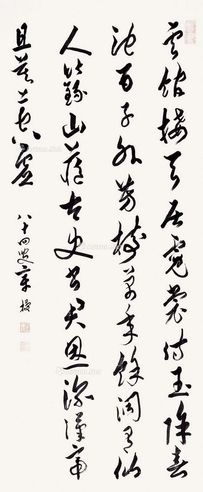 雲館接天居霓裳侍玉除春
池百子外芳樹萬年餘洞有仙
人籙山藏太史書君恩深漢帝
且莫上空虛
八十四叟